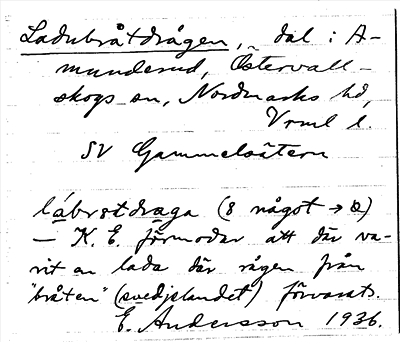 Ladubråtdrågen, dal i A-
munderud, Östervall-
skogs sn, Nordmarks hd,
Vrml l.
SV Gammelsätern
lábrɛtdraga (ɛ något → ɑ)
— K. E. förmodar att där va-
rit en lada där rågen från
"bråten" (svedjelandet) förvarats.
E. Andersson 1936.